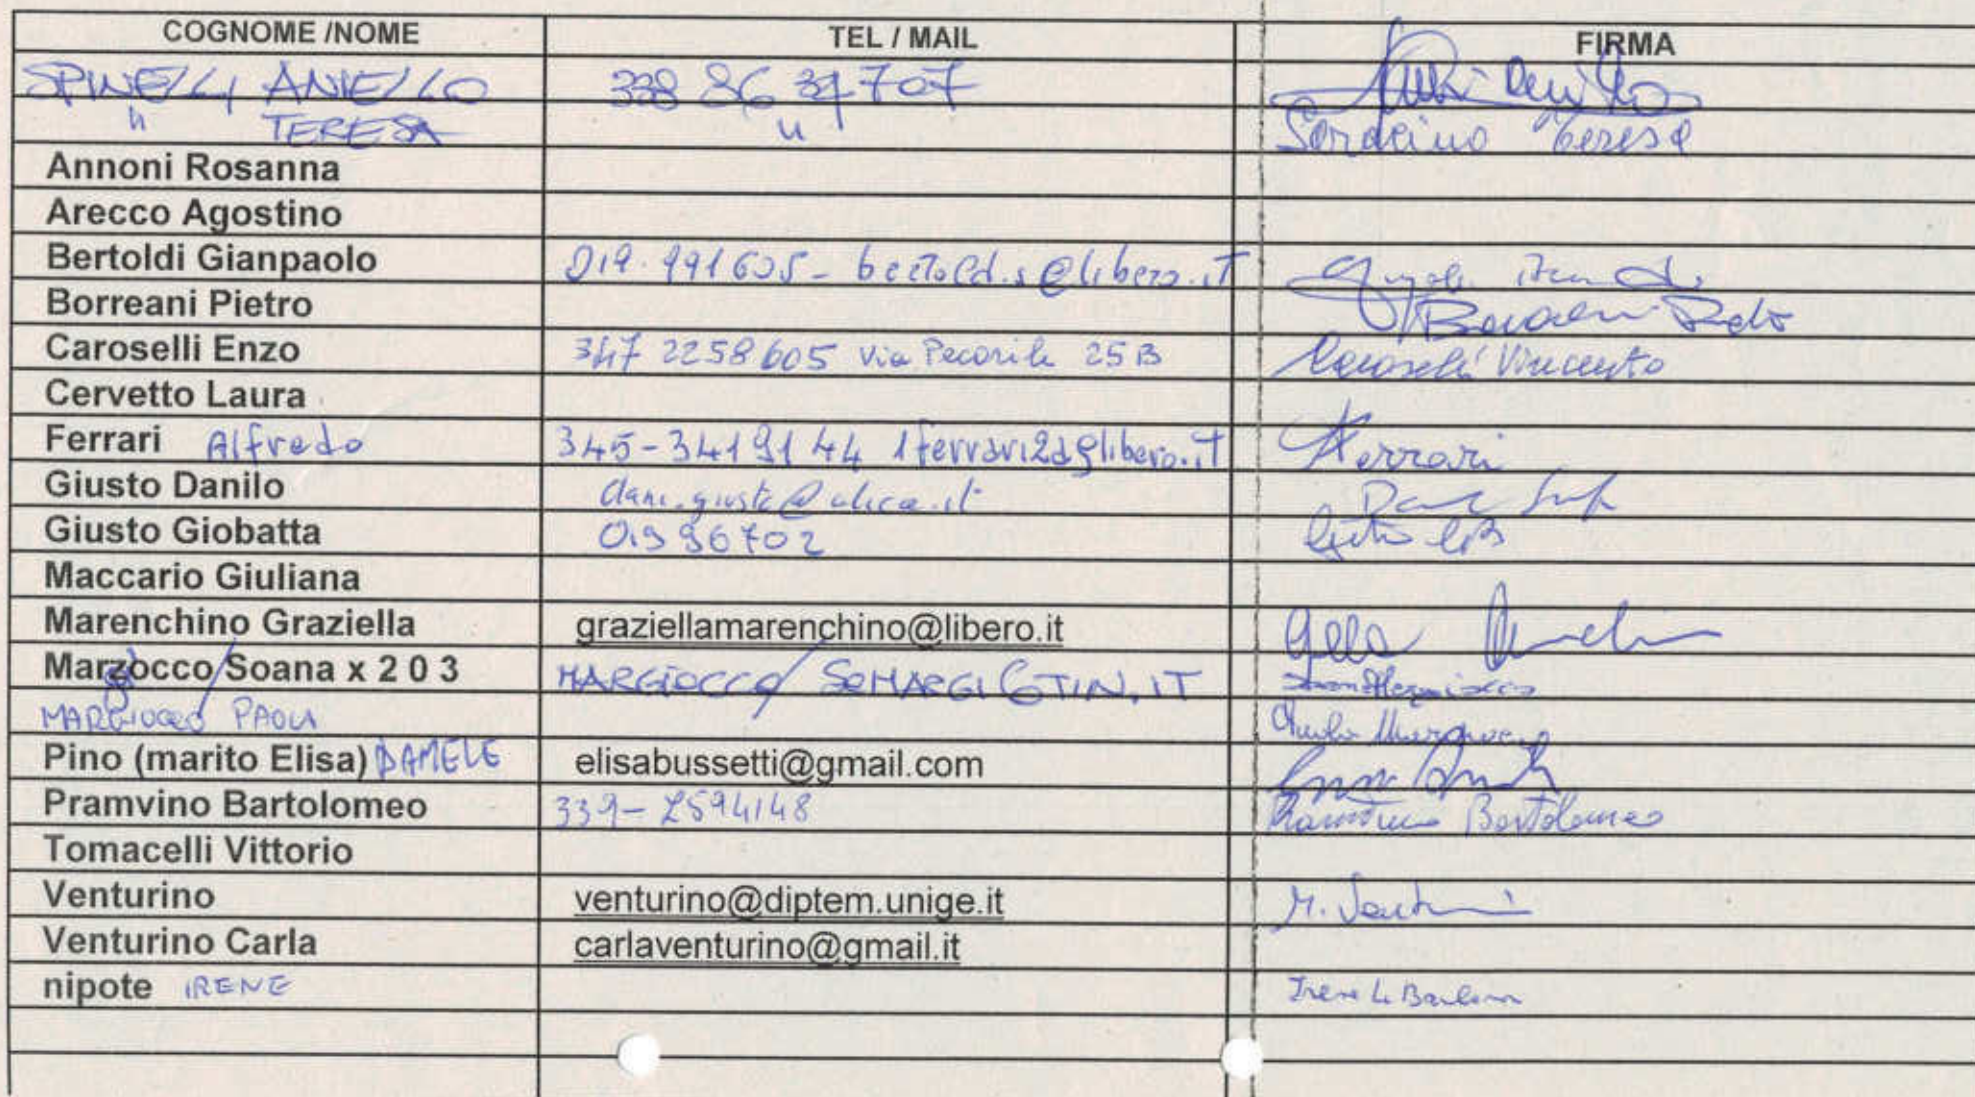 COGNOME /NOME TEL / MAIL FIRMA
SPINELLI ANIELLO 338 86 34 707
" TERESA " Teresa
Annoni Rosanna
Arecco Agostino
Bertoldi Gianpaolo 019.991605- bertoldi.s@libero.it
Borreani Pietro
Caroselli Enzo 347 2258605 via Pecorile 25B Caroselli Vincenzo
Cervetto Laura
Ferrari Alfredo 345-3419144 1ferrari2a@libero.it Ferrari
Giusto Danilo dani.giusto@alice.it
Giusto Giobatta 01996702
Maccario Giuliana
Marenchino Graziella graziellamarenchino@libero.it
Marzocco/Soana x 2 0 3 MARGIOCCO/ SOMARGI@TIN.IT
MARGIOCCO PAOLA
Pino (marito Elisa) DAMELE elisabussetti@gmail.com
Pramvino Bartolomeo 339-2594148 Bartolomeo
Tomacelli Vittorio
Venturino venturino@diptem.unige.it M.
Venturino Carla carlaventurino@gmail.it
nipote IRENE Irene